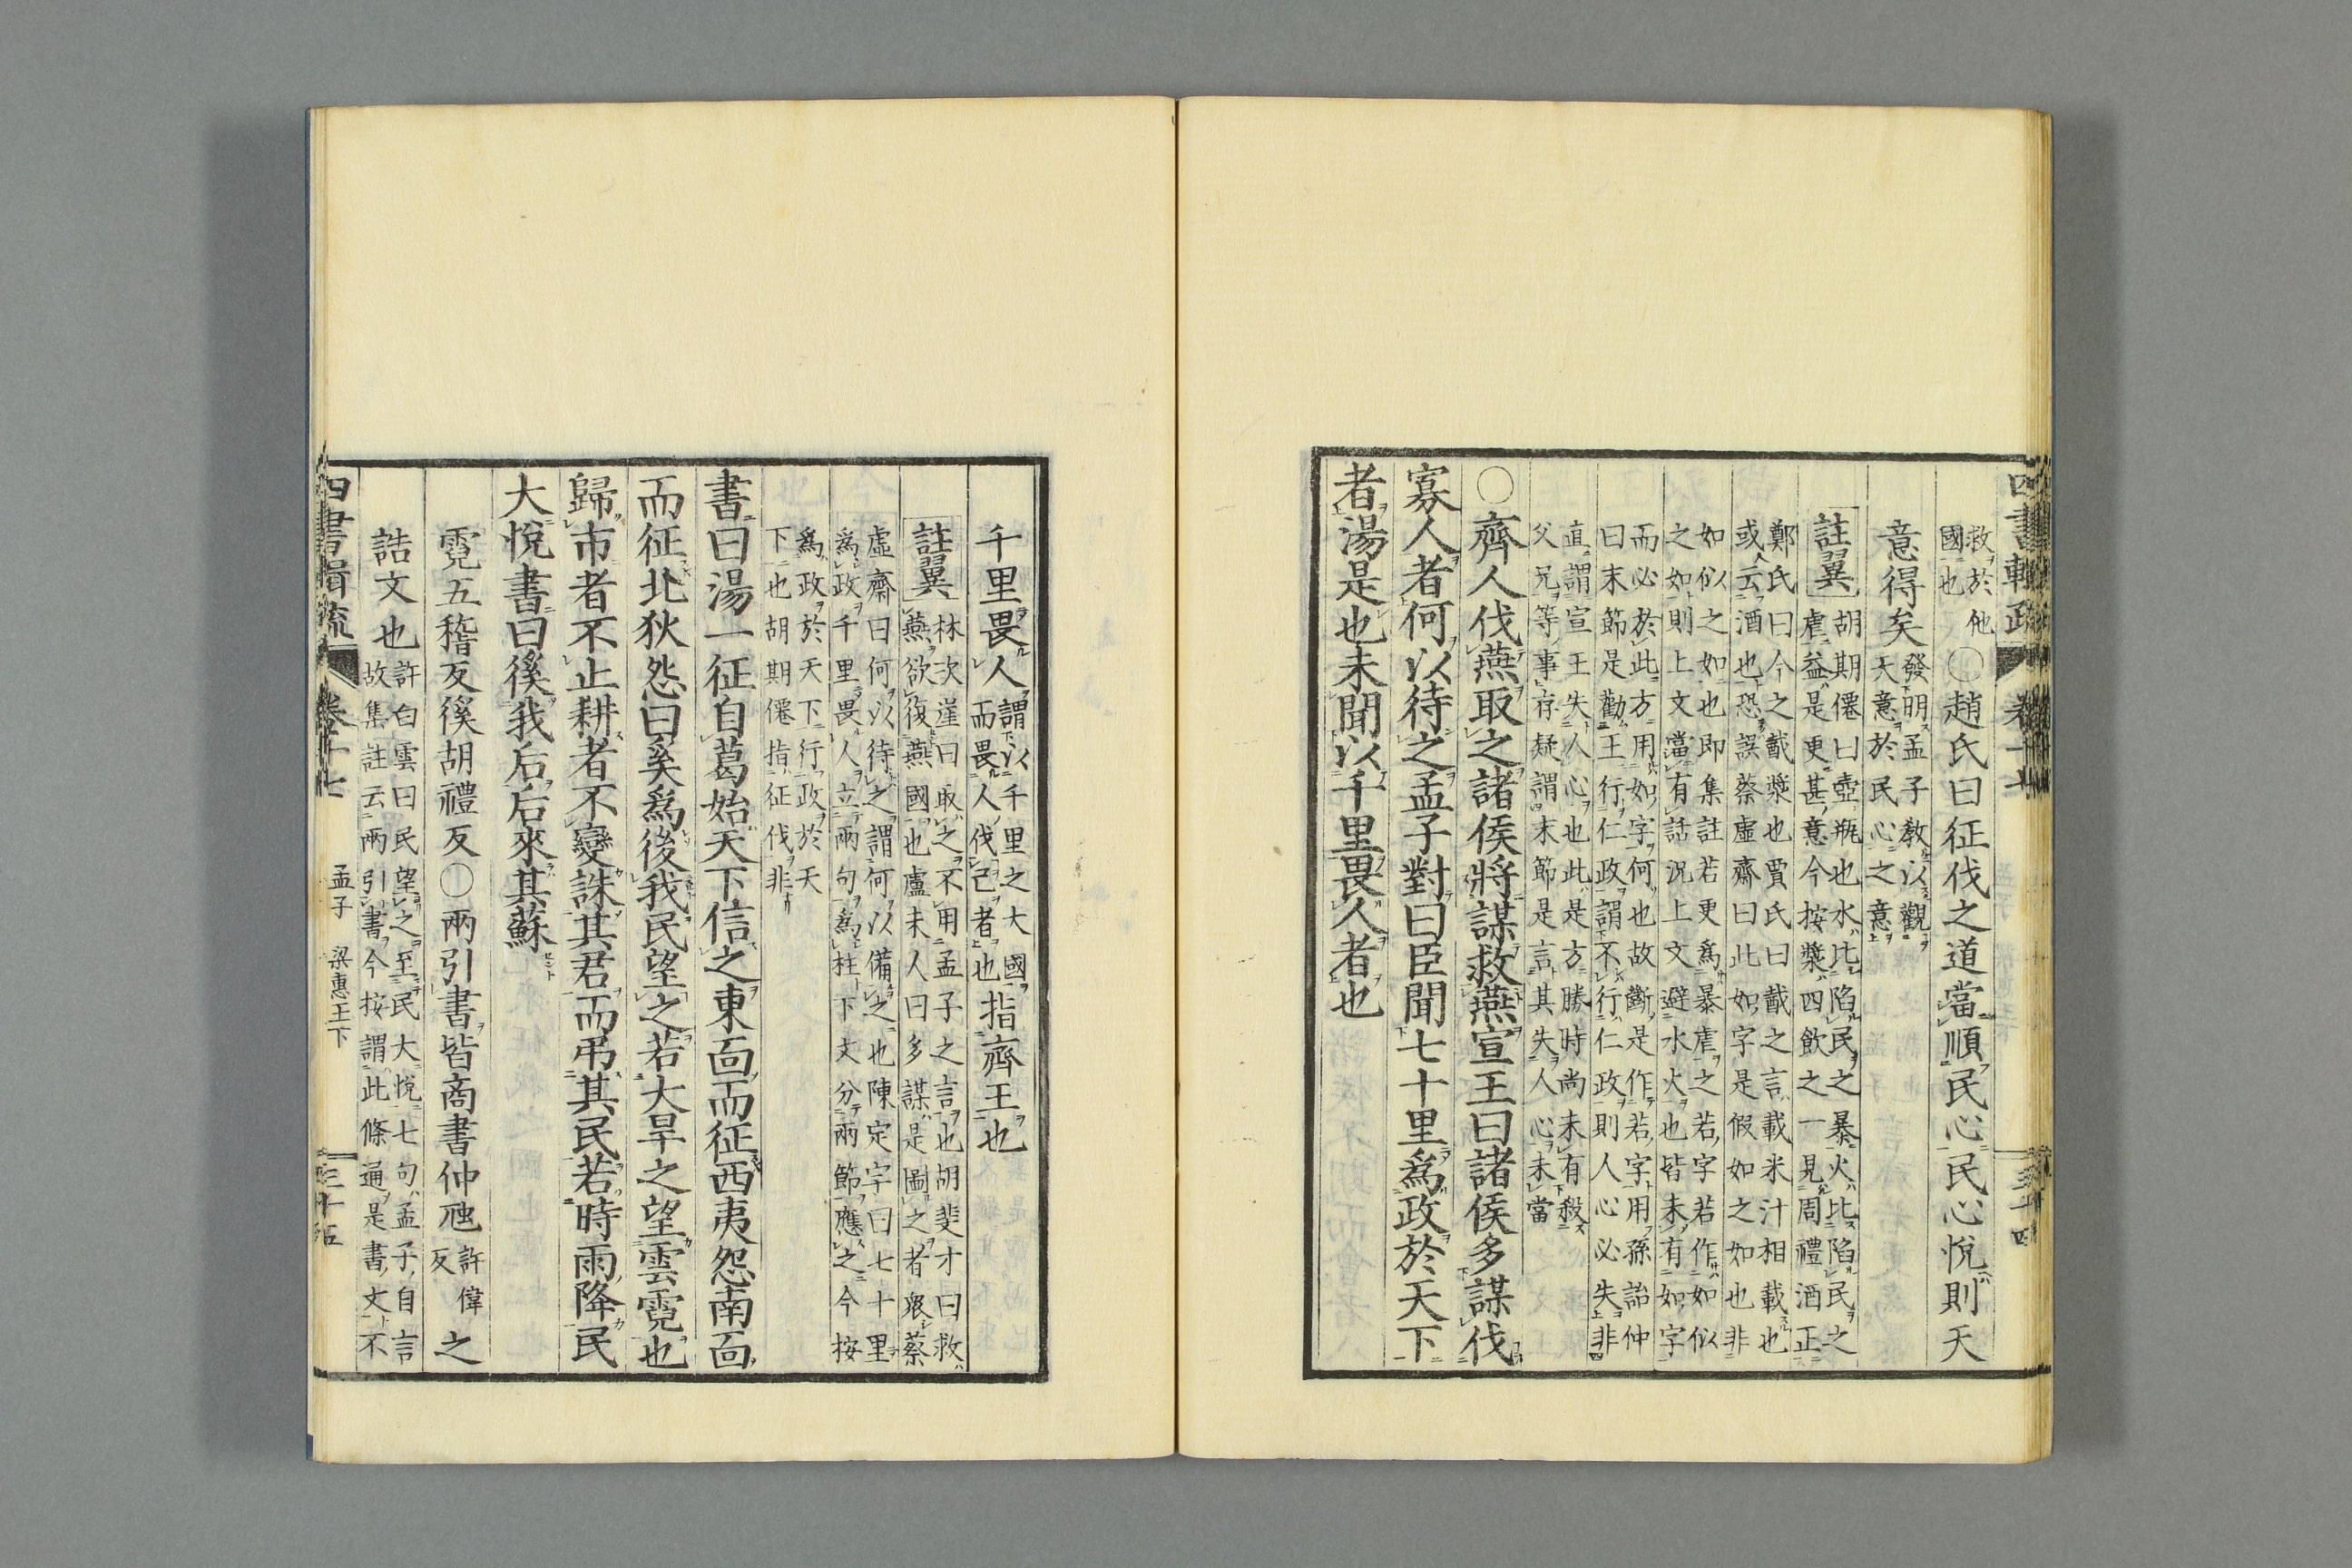 四書輯疏 卷十七 三十四
救於他
國也
〇趙氏曰征伐之道當順民心民心悅則天
意得矣
發明孟子教以觀
天意於民心之意
註翼
胡期僊曰壺瓶也水比陷民之暴火比陷民之
虐益是更甚意今按漿四飲之一見周禮酒正
鄭氏曰今之酨漿也賈氏曰酨之言載米汁相載也
或云酒也恐誤蔡虛齋曰此如字是假如之如也非
如似之如也即集註若更爲暴虐之若字若作如似
之如則上文當有話況上文避水火也皆未有如字
而必於此方用如字何也故斷是作若字用孫詒仲
曰末節是勸王行仁政謂不行仁政則人心必失非
直謂宣王失人心也此是方勝時尚未有殺
父兄等事存疑謂末節是言其失人心未當
〇齊人伐燕取之諸侯將謀救燕宣王曰諸侯多謀伐
寡人者何以待之孟子對曰臣聞七十里爲政於天下
者湯是也未聞以千里畏人者也
千里畏人
謂以千里之大國
而畏人伐己者也
指齊王也
註翼
林次崖曰取之不用孟子之言也胡斐才曰救
燕欲復燕國也盧未人曰多謀是圖之者衆蔡
虛齋曰何以待之謂何以備之也陳定宇曰七十里
爲政千里畏人立兩句爲柱下文分兩節應之今按
爲政於天下行政於天
下也胡期僊指征伐非
書曰湯一征自葛始天下信之東面而征西夷怨南面
而征北狄怨曰奚爲後我民望之若大旱之望雲霓也
歸市者不止耕者不變誅其君而弔其民若時雨降民
大悅書曰徯我后后來其蘇
霓五稽反徯胡禮反〇兩引書皆商書仲虺
許偉
反
之
誥文也
許白雲曰民望之至民大悅七句孟子自言
故集註云兩引書今按謂此條通是書文不
四書輯疏 卷十七 孟子 梁惠王下 三十五